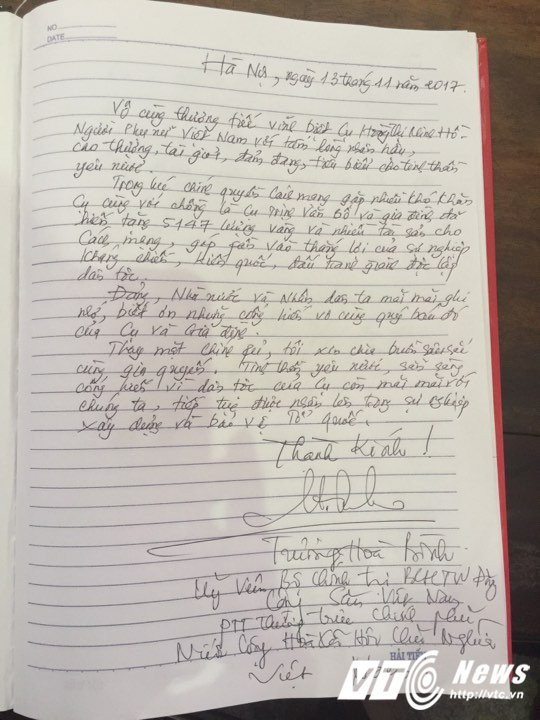 NO.
DATE
Hà Nội, ngày 13 tháng 11 năm 2017.
Vô cùng thương tiếc vĩnh biệt Cụ Hoàng Thị Minh Hồ -
Người Phụ nữ Việt Nam với tấm lòng nhân hậu,
cho thương, tài giỏi, đảm đang, tiêu biểu cho tinh thần
yêu nước.
Trong lúc chính quyền Cách mạng gặp nhiều khó khăn
Cụ cùng với chồng là Cụ Trịnh Văn Bô và gia đình đã
hiến tặng 5147 lượng vàng và nhiều tài sản cho
Cách mạng, góp phần vào thắng lợi của sự nghiệp
kháng chiến, kiến quốc, đấu tranh giành độc lập
dân tộc.
Đảng, Nhà nước và Nhân dân ta mãi mãi ghi
nhớ, biết ơn những cống hiến vô cùng quý báu đó
của Cụ và Gia đình.
Thay mặt Chính phủ, tôi xin chia buồn sâu sắc
cùng gia quyến. Tinh thần yêu nước, sẵn sàng
cống hiến vì dân tộc của Cụ còn mãi mãi với
chúng ta, tiếp tục được nhân lên trong sự nghiệp
xây dựng và bảo vệ Tổ quốc.
Thành Kính!
Trương Hoà Bình
Uỷ viên Bộ Chính trị BCHTW Đảng
Cộng Sản Việt Nam
PTT Thường trực Chính phủ
Nước Cộng Hoà Xã Hội Chủ Nghĩa
Việt Nam
HẢI TIẾN
VTC News
http://vtc.vn